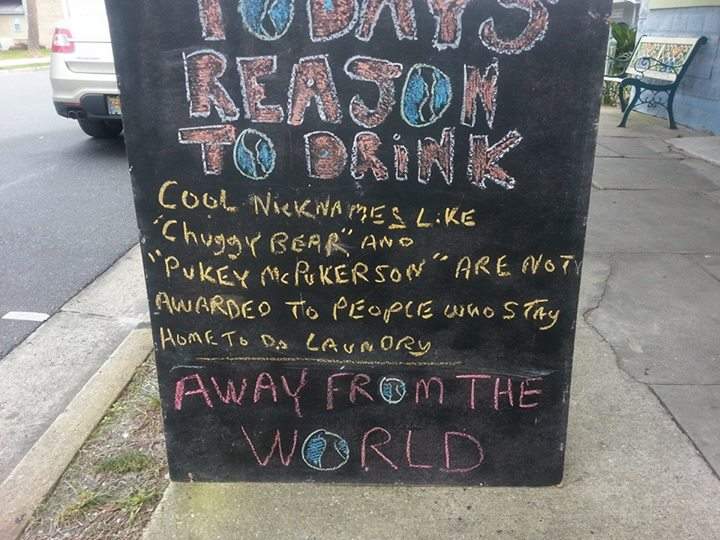 TODAYS
REASON
TO DRINK
COOL NICKNAMES LIKE
"Chuggy BEAR" AND
"PUKEY McPUKERSON" ARE NOT
AWARDED TO PEOPLE WHO STAY
HOME TO DO LAUNDRY
AWAY FROM THE
WORLD